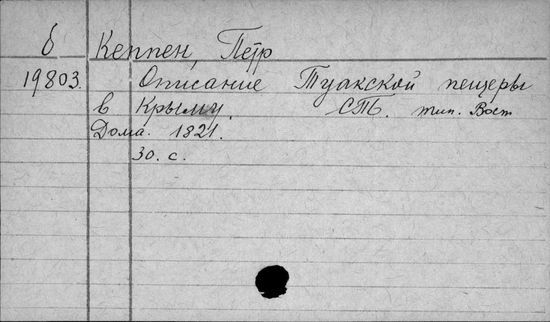 б Кеппен, Петр
19803. Описание Туакской пещеры
в Крыму. СПб. тип. Вост
Дома. 1821.
30. с.